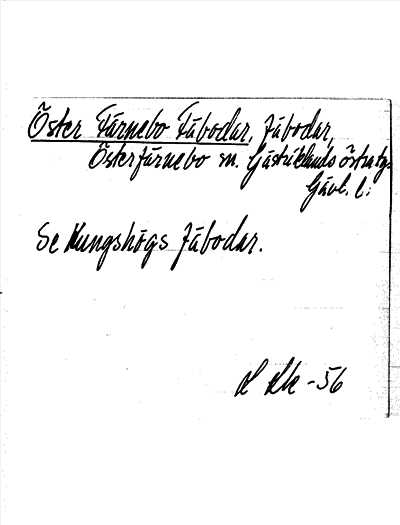 Öster Färnebo Fäbodar, Fäbodar,
Österfärnebo sn. Gästriklands östra tg.
Gävl. l:
Se Kungshögs Fäbodar.
-56